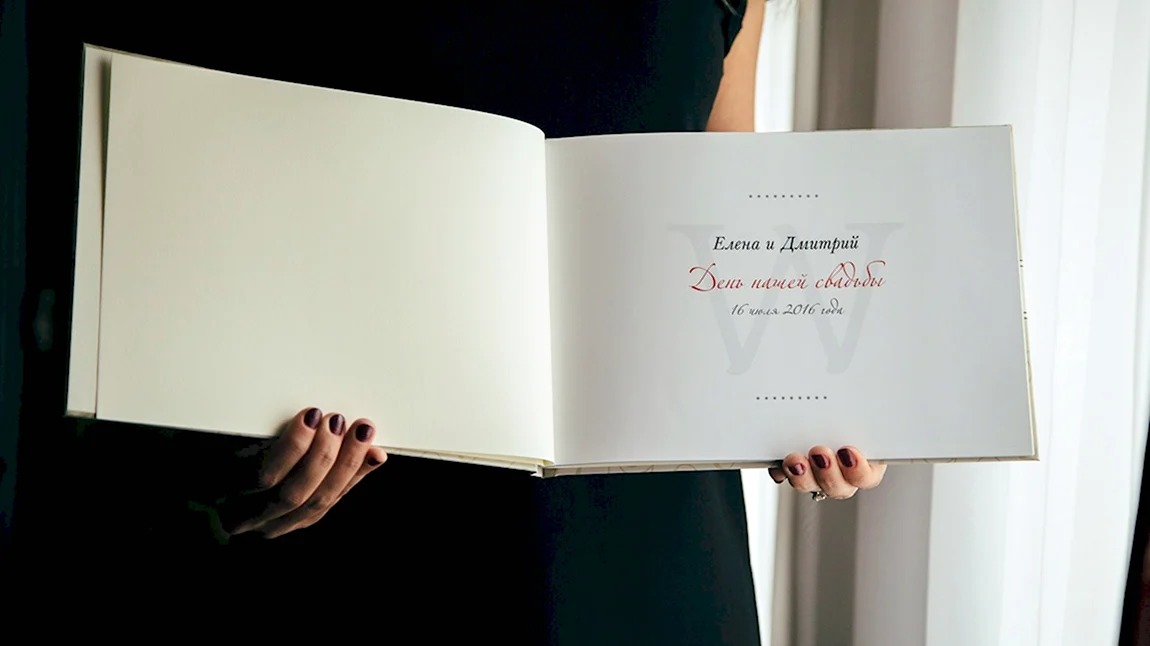 Елена и Дмитрий
День нашей свадьбы
16 июля 2016 года
W